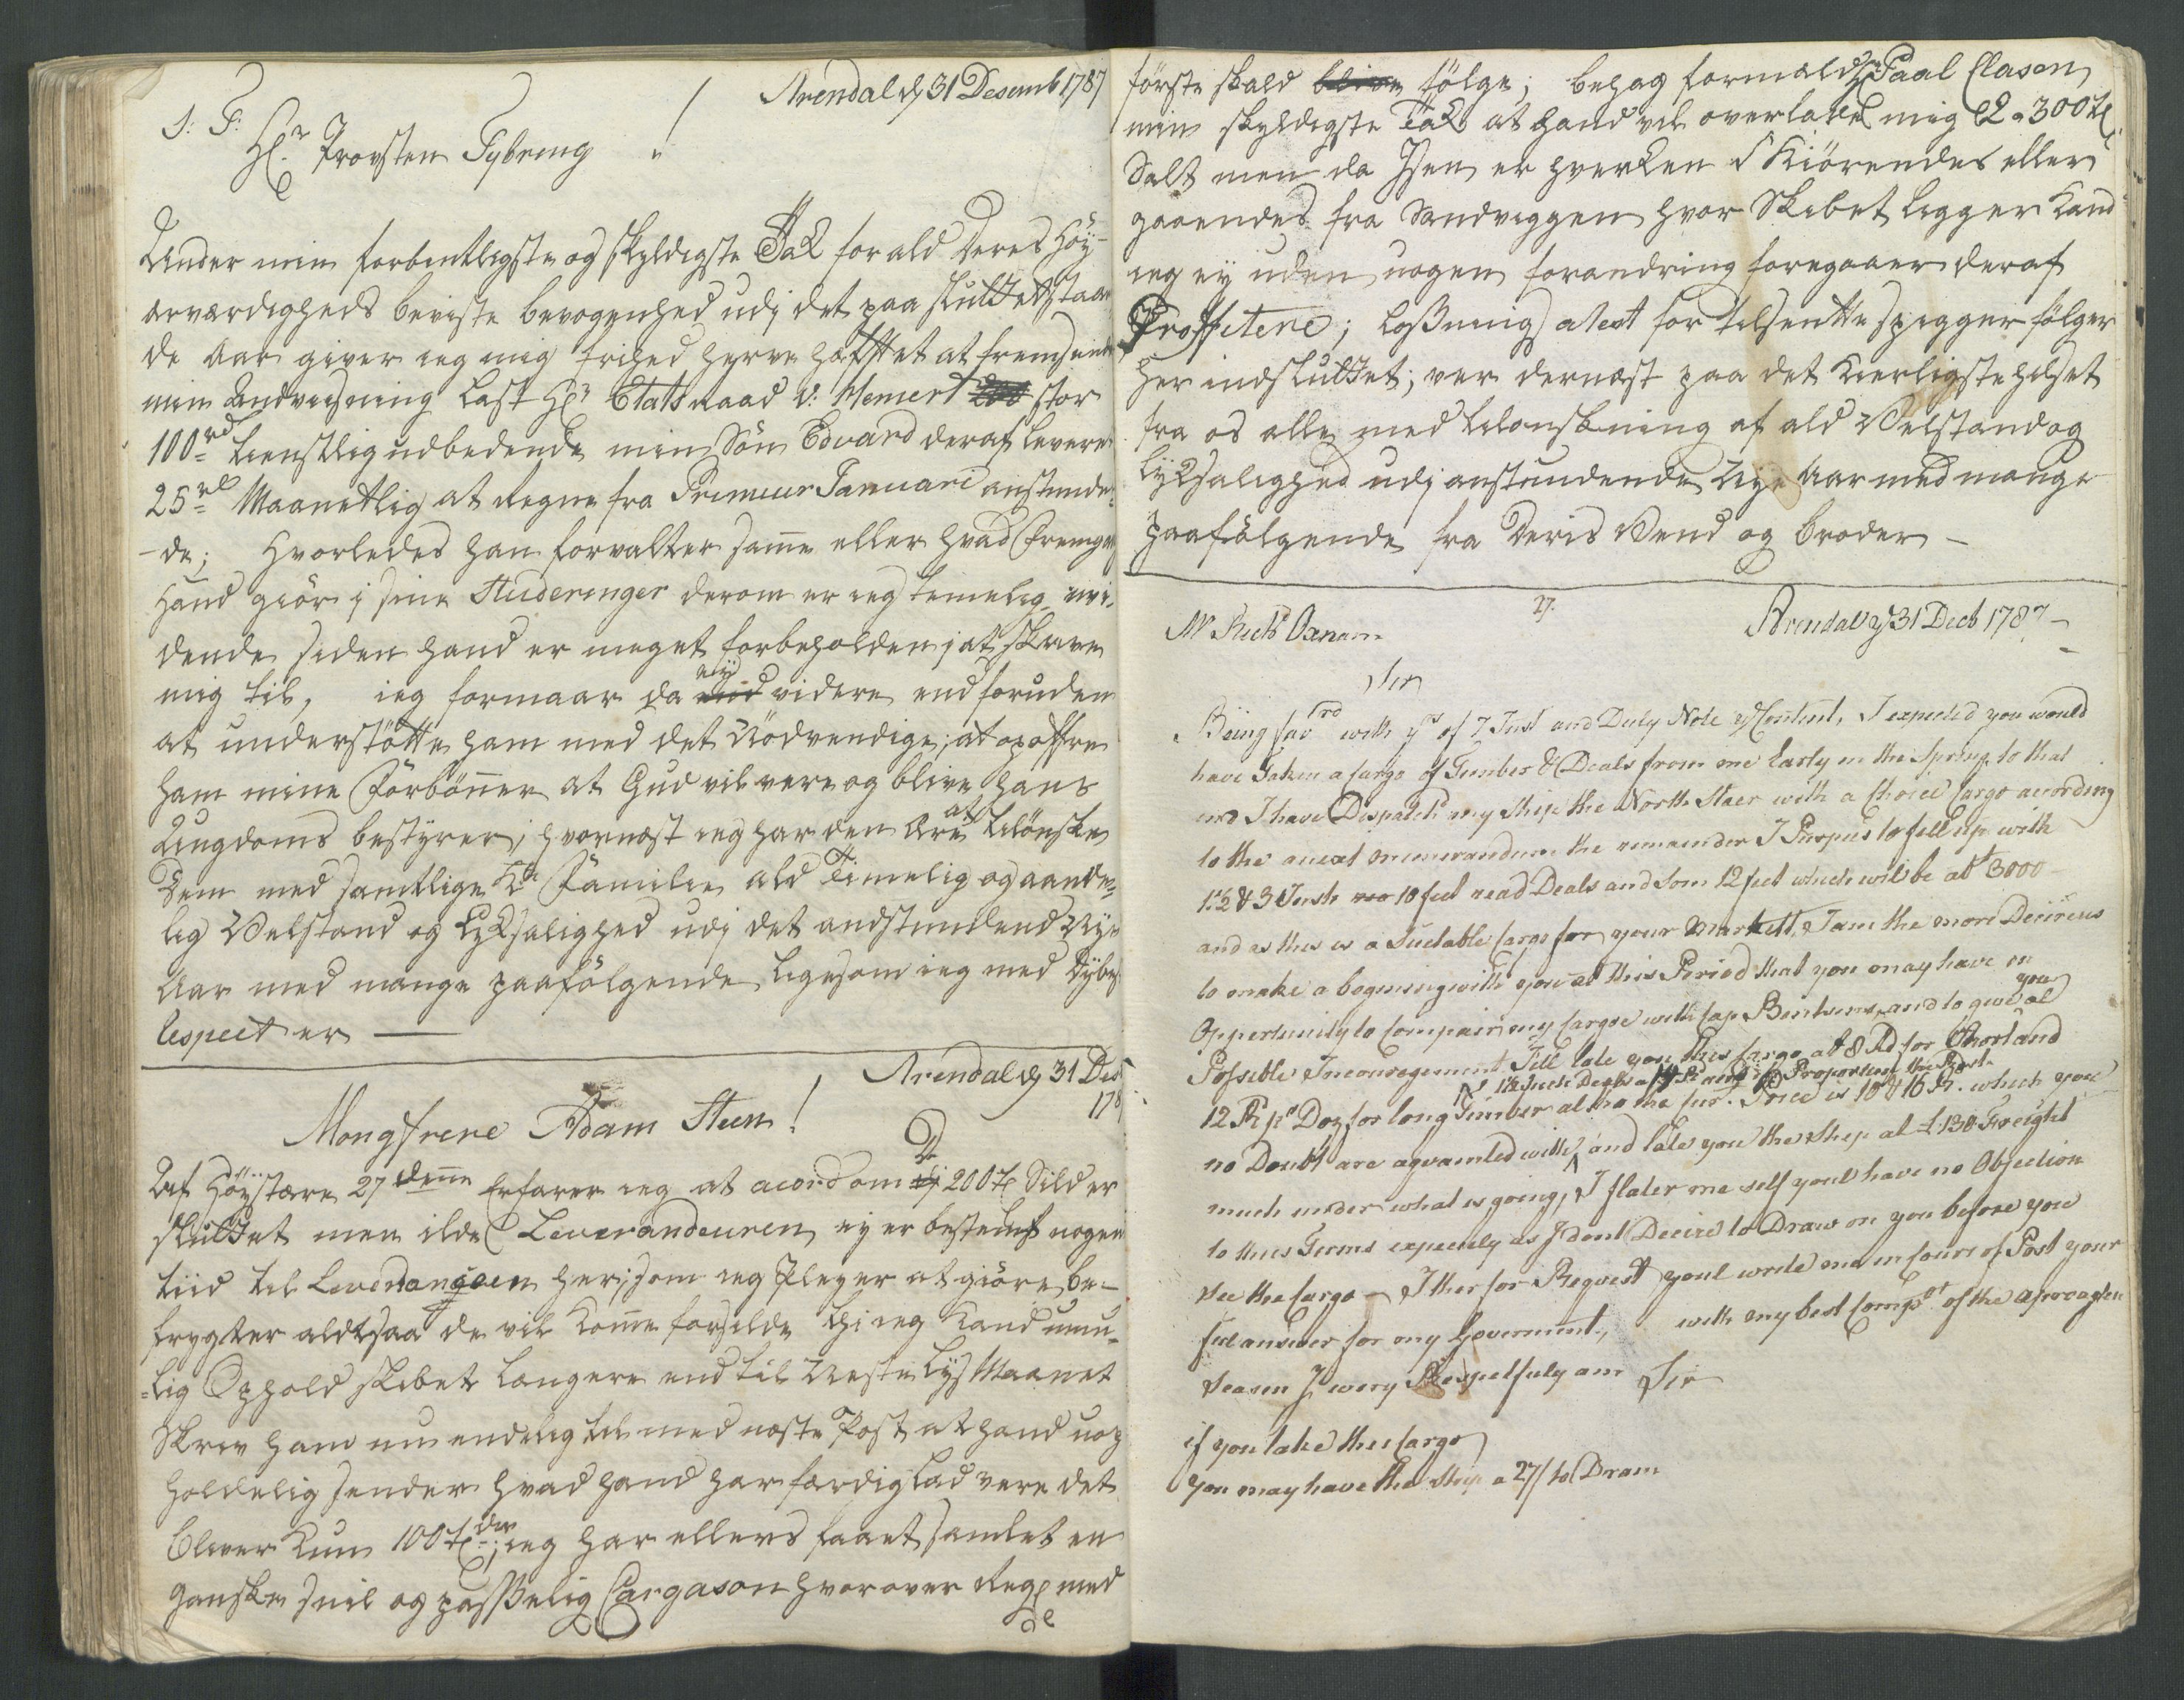 Arendal d 31 Desemb 1787
S: T:
Hr Provsten Tybring !
Under min forbentligste og skyldigste Tak for ald Deres Höy-
ærværdigheds beviste bevogenhed udj det paa sluttetstaaen
de Aar giver ieg mig frihed herve hæfftet at fremsende
min Andviisning Last Hr Etatsraad v: Hemert stor
100 rd tienstlig udbedende min Sön Edvard deraf levere
25 rd Maanetlig at regne fra Primeur Januari anstunde-
-de; Hvorledes han forvalter samme eller hvad fremgang
Hand giör i sine Studeringer derom er ieg temelig uvi-
dende siden hand er meget forbeholden i at skrive
mig til, ieg formaar da eij videre end foruden
at understötte ham med det Nödvendige; at opoffre
ham mine Forbönner at Gud vil vere og blive hans
Ungdoms bestyrer; hvornæst ieg har den Ære at tilönske
Dem med samtlige Kr Familie ald Timelig og aande-
lig Velstand og Lyksalighed udj det andstundend Nye
Aar med mange paafölgende ligesom ieg med dybeste
Respect er —
Arendal d 31 Des
178
Mongfrere Adam Steen!
Af Höystære 27 denne Erfarer ieg at acord om 200 t Sild er
sluttet men ilde Leverandeuren ey er bestemt nogen
tiid til Leverangsen her; som ieg Pleyer at giöre, be-
frygter altsaa de vil komme forsilde thi ieg kand umu-
-lig Ophold skibet længere end til Neste Lys Maanet
Skrev ham nu endelig til med næste Post at hand uop
holdelig sender hvad hand har færdig lad vere det
bliver kun 100 t der; ieg har ellers faaet samlet en
ganske snil og passelig Cargason hvorover Regg med
de
förste skald fölge; behag formeld Hr Paal Clasen
min skyldigste Tak at hand vil overlate mig 2 a 300 t
Salt men da Isen er hverken Kiörendes eller
gaaendes fra Sandviggen hvor Skibet ligger kand
ieg ey uden nogen forandring foregaaer deraf
Proffitere; Losnings atest for tilsentte spigger fölger
her indsluttet; ver dernæst paa det kierligste hilset
fra os alle med tilönskning af ald Velstand og
Lyksalighed udj anstundende Nye Aar med mange
paafölgende fra Deris Vend og broder —
27.
Arendal d 31 Decb 1787 –
Mr Richd Oxnam
Sir
Being favrd with yrs of 7 Inst and Duly Note ye Content, I expected you would
have Taken a Cargo of Timber & Deals from me Early in the Spring to that
end I have Dispatcht my Ship the North Staer with a Choice Cargo acording
to the anext memorandum the remainder I Purpus to fell up with
1½ & 3 Insh 10 feet read Deals and som 12 feet which wil be abt 3000
and as this is a Suetable Cargo for your Markett, I am the more Deciireus
to make a begening with you at this Period that you may have en
Oppertunity to Compair my Cargoe with Cap Bentsens, and to give you al
Possible Incouregement Ill late you this Cargo at 8 Rd for Short and
12 Rd pr Doz for long Timber altho the cur. Price is 10 & 16 R. which you
1½ Insh Deals a and in Proporsion the Rest
no Doubt are aqvainted with, and late you the Ship at £130 Freight
much under what is going, I flater me self youl have no Objection
to thees Terms expecialy as I dont Decire to Draw on you before you
See the Cargo — I therfor Reqvest youl write me in cours of Post your
ful answer for my Goverment, with my best Compts of the aproaghen
Season I wery Respectfuly am Sir
if you take this Cargo
You may have the Ship a 27/ to Dram